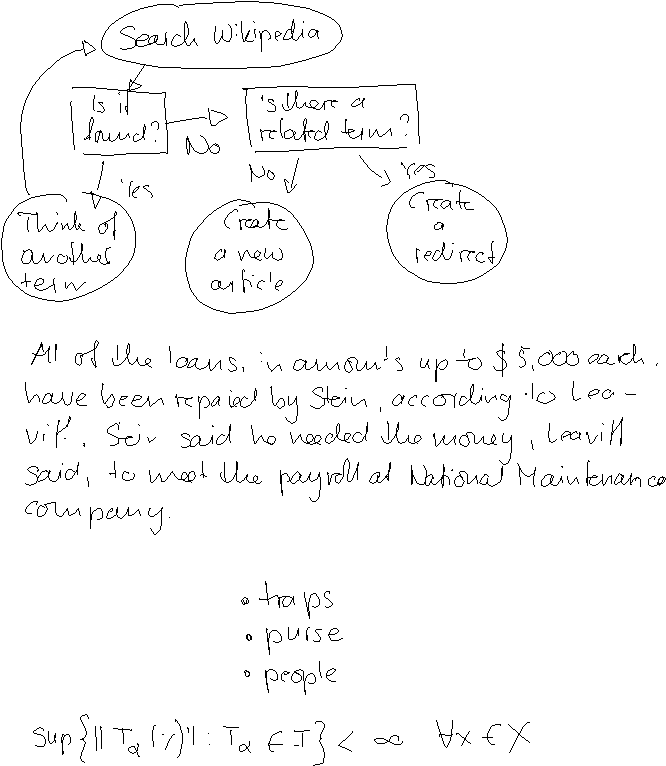 Search Wikipedia
Is it
found?
No
Is there a
related term?
Yes
No
Yes
Think of
another
term
Create
a new
article
Create
a
redirect
All of the loans, in amounts up to $ 5,000 each,
have been repaied by Stein, according to Lea-
vitt. Stein said he needed the money, Leavitt
said, to meet the payroll at National Maintenance
company.
• traps
• purse
• people
sup{|| T_α (x) || : T_α ∈ J} < ∞ ∀x ∈ X